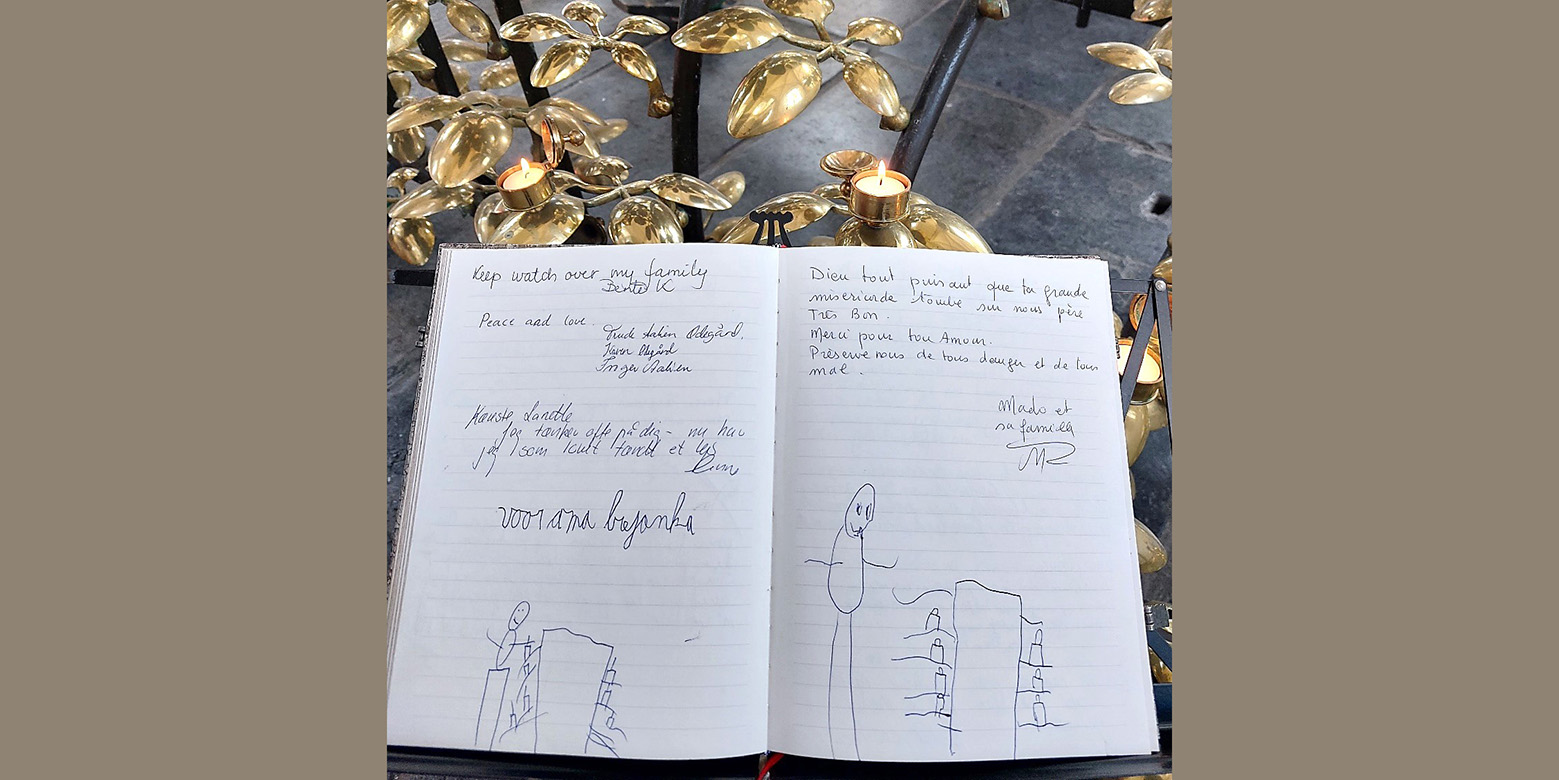 Keep watch over my family
Bente K
Peace and love.
Ødegård.
Karen Ødegård
Inger
Kæreste
Jeg tænker ofte på dig - nu har
jeg som tændt et lys
voor ama
Dieu tout puisant que ta grande
misericorde tombe sur nous père
Très Bon.
Merci pour ton Amour.
Préserve nous de tous danger et de tous
mal.
Mado et
sa famille